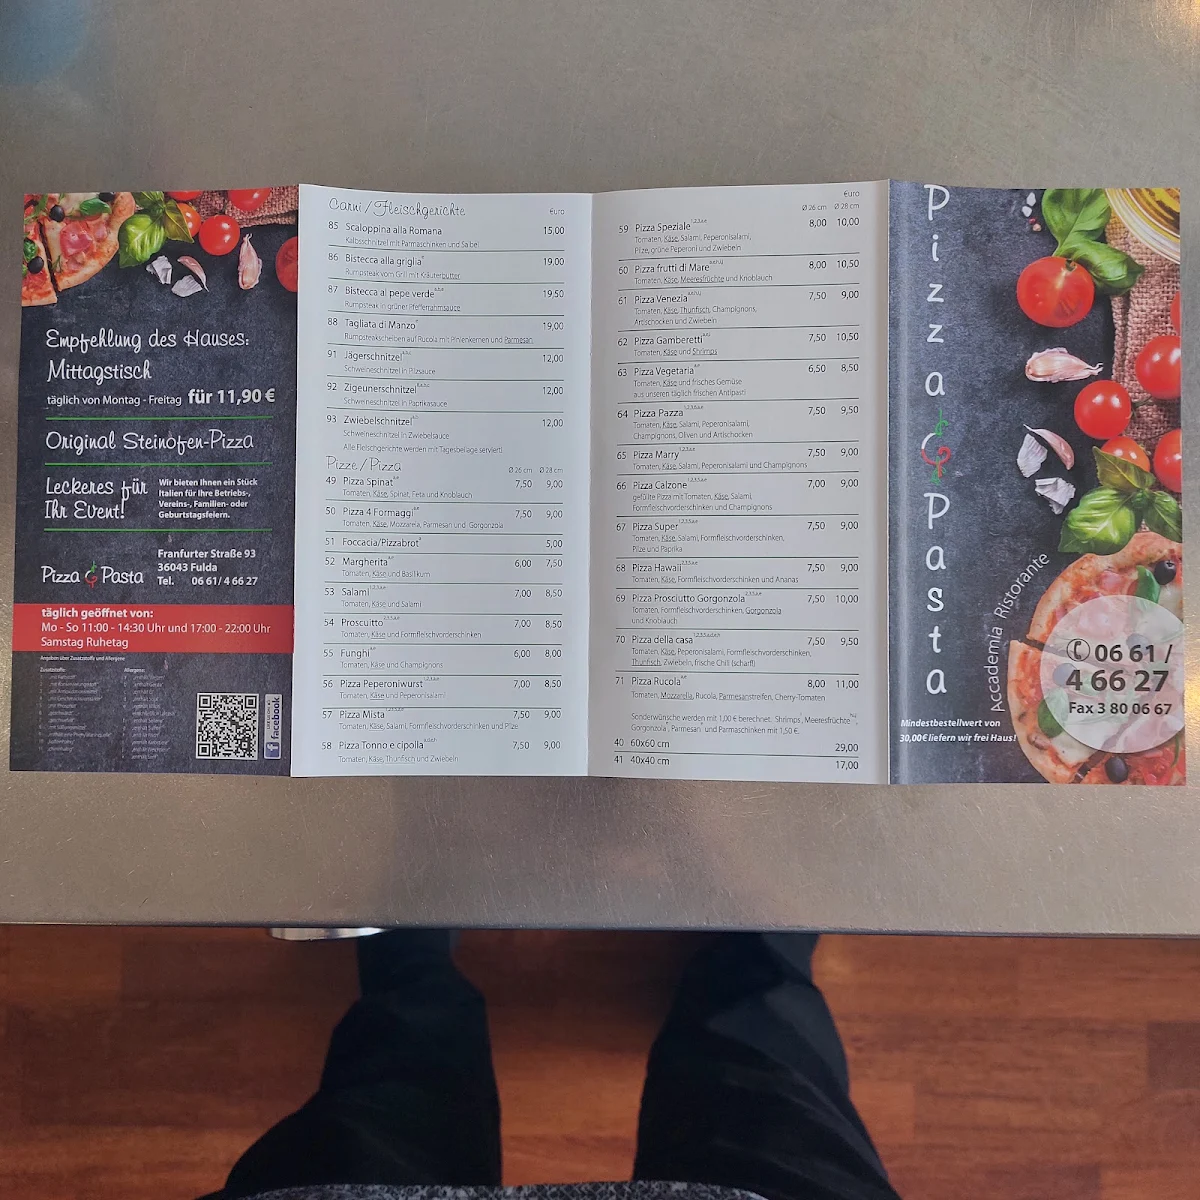 Empfehlung des Hauses:
Mittagstisch
täglich von Montag - Freitag für 11,90 €
Original Steinofen-Pizza
Leckeres für
Ihr Event!
Wir bieten Ihnen ein Stück
Italien für Ihre Betriebs-,
Vereins-, Familien- oder
Geburtstagsfeiern.
Pizza & Pasta
Franfurter Straße 93
36043 Fulda
Tel. 06 61/ 4 66 27
täglich geöffnet von:
Mo - So 11:00 - 14:30 Uhr und 17:00 - 22:00 Uhr
Samstag Ruhetag
Angaben über Zusatzstoffe und Allergene
Zusatzstoffe:
Allergene:
facebook
Carni / Fleischgerichte €uro
85 Scaloppina alla Romana 15,00
Kalbsschnitzel mit Parmaschinken und Salbei
86 Bistecca alla griglia 19,00
Rumpsteak vom Grill mit Kräuterbutter
87 Bistecca al pepe verde 19,50
Rumpsteak in grüner Pfefferrahmsauce
88 Tagliata di Manzo 19,00
Rumpsteakscheiben auf Rucola mit Pinienkernen und Parmesan
91 Jägerschnitzel 12,00
Schweineschnitzel in Pilzsauce
92 Zigeunerschnitzel 12,00
Schweineschnitzel in Paprikasauce
93 Zwiebelschnitzel 12,00
Schweineschnitzel in Zwiebelsauce
Alle Fleischgerichte werden mit Tagesbeilage serviert!
Pizze / Pizza Ø 26 cm Ø 28 cm
49 Pizza Spinat 7,50 9,00
Tomaten, Käse, Spinat, Feta und Knoblauch
50 Pizza 4 Formaggi 7,50 9,00
Tomaten, Käse, Mozzarella, Parmesan und Gorgonzola
51 Foccacia/Pizzabrot 5,00
52 Margherita 6,00 7,50
Tomaten, Käse und Basilikum
53 Salami 7,00 8,50
Tomaten, Käse und Salami
54 Proscuitto 7,00 8,50
Tomaten, Käse und Formfleischvorderschinken
55 Funghi 6,00 8,00
Tomaten, Käse und Champignons
56 Pizza Peperoniwurst 7,00 8,50
Tomaten, Käse und Peperonisalami
57 Pizza Mista 7,50 9,00
Tomaten, Käse, Salami, Formfleischvorderschinken und Pilze
58 Pizza Tonno e cipolla 7,50 9,00
Tomaten, Käse, Thunfisch und Zwiebeln
€uro
Ø 26 cm Ø 28 cm
59 Pizza Speziale 8,00 10,00
Tomaten, Käse, Salami, Peperonisalami,
Pilze, grüne Peperoni und Zwiebeln
60 Pizza frutti di Mare 8,00 10,50
Tomaten, Käse, Meeresfrüchte und Knoblauch
61 Pizza Venezia 7,50 9,00
Tomaten, Käse, Thunfisch, Champignons,
Artischocken und Zwiebeln
62 Pizza Gamberetti 7,50 10,50
Tomaten, Käse und Shrimps
63 Pizza Vegetaria 6,50 8,50
Tomaten, Käse und frisches Gemüse
aus unseren täglich frischen Antipasti
64 Pizza Pazza 7,50 9,50
Tomaten, Käse, Salami, Peperonisalami,
Champignons, Oliven und Artischocken
65 Pizza Marry 7,50 9,00
Tomaten, Käse, Salami, Peperonisalami und Champignons
66 Pizza Calzone 7,00 9,00
gefüllte Pizza mit Tomaten, Käse, Salami,
Formfleischvorderschinken und Champignons
67 Pizza Super 7,50 9,00
Tomaten, Käse, Salami, Formfleischvorderschinken,
Pilze und Paprika
68 Pizza Hawaii 7,50 9,00
Tomaten, Käse, Formfleischvorderschinken und Ananas
69 Pizza Prosciutto Gorgonzola 7,50 10,00
Tomaten, Formfleischvorderschinken, Gorgonzola
und Knoblauch
70 Pizza della casa 7,50 9,50
Tomaten, Käse, Peperonisalami, Formfleischvorderschinken,
Thunfisch, Zwiebeln, frische Chili (scharf!)
71 Pizza Rucola 8,00 11,00
Tomaten, Mozzarella, Rucola, Parmesanstreifen, Cherry-Tomaten
Sonderwünsche werden mit 1,00 € berechnet. Shrimps, Meeresfrüchte,
Gorgonzola, Parmesan und Parmaschinken mit 1,50 €.
40 60x60 cm 29,00
41 40x40 cm 17,00
Pizza & Pasta
Accademia Ristorante
✆ 06 61 /
4 66 27
Fax 3 80 06 67
Mindestbestellwert von
30,00€ liefern wir frei Haus!